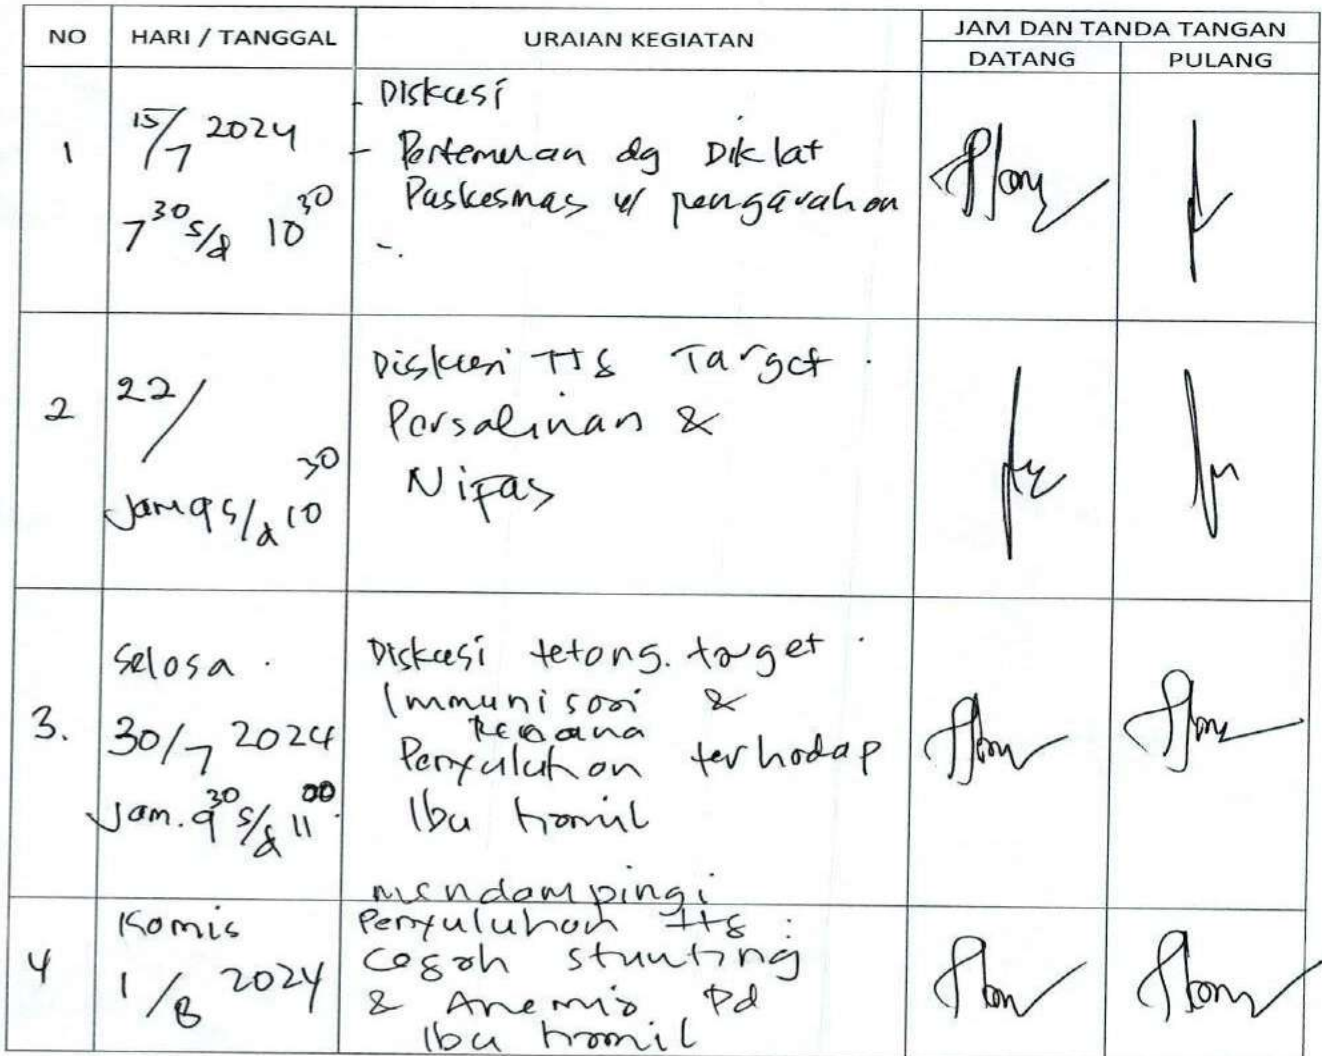 NO HARI / TANGGAL URAIAN KEGIATAN JAM DAN TANDA TANGAN
DATANG PULANG
1
15/7 2024
7 30 s/d 10 30
- Diskusi
- Pertemuan dg Diklat
Puskesmas u/ pengarahan
-.
2
22/
Jam 9 s/d 10 30
Diskusi ttg Target.
Persalinan &
Nifas
3.
Selasa.
30/7 2024
Jam. 9 30 s/d 11 00
Diskusi tetang. target.
Immunisasi &
Rencana
Penyuluhan terhadap
Ibu hamil
4
Kamis
1/8 2024
mendampingi
Penyuluhan ttg :
Cegah stunting
& Anemia pd
Ibu hamil